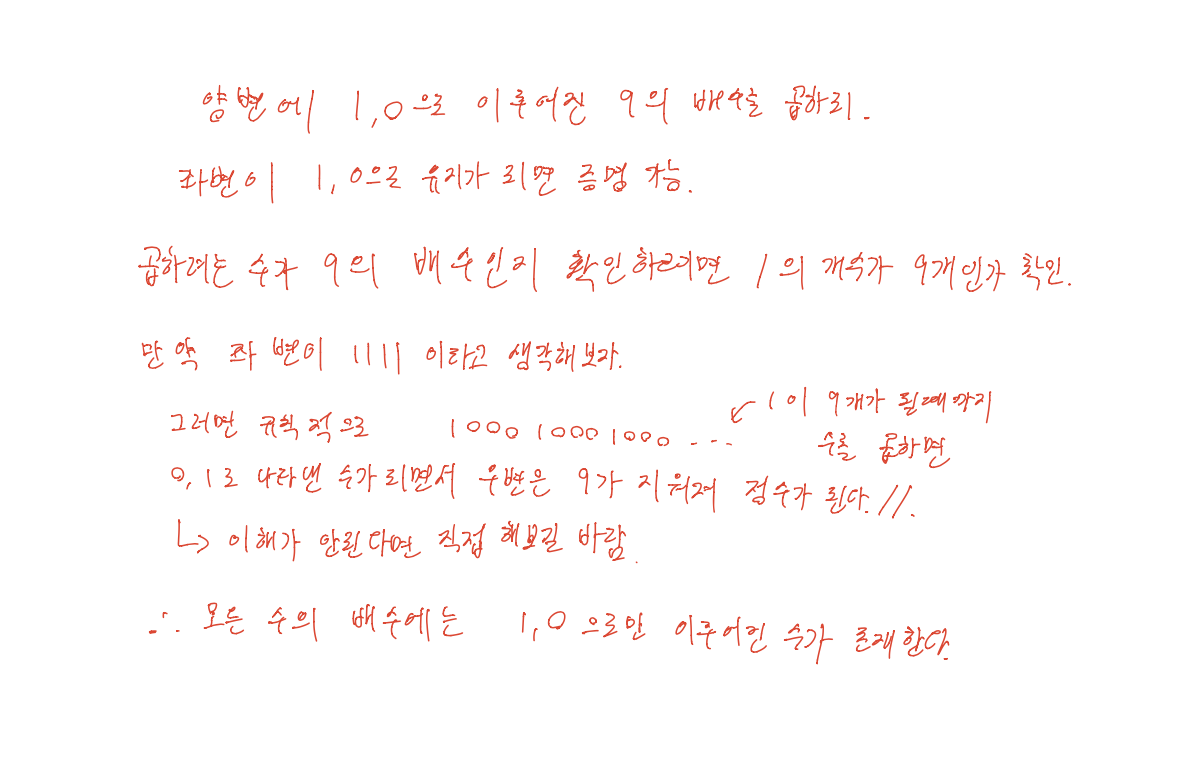 양변에 1,0으로 이루어진 9의 배수를 곱하리.
좌변이 1,0으로 유지가 되면 증명 가능.
곱하려는 수가 9의 배수인지 확인하려면 1의 개수가 9개인가 확인.
만약 좌변이 1111 이라고 생각해보자.
그러면 규칙적으로 1000 1000 1000 ... ↙ 1이 9개가 될때까지
수를 곱하면
0,1로 나타낸 수가 되면서 우변은 9가 지워져 정수가 된다.//.
↳ 이해가 안된다면 직접 해보길 바람.
∴ 모든 수의 배수에는 1,0으로만 이루어진 수가 존재한다.